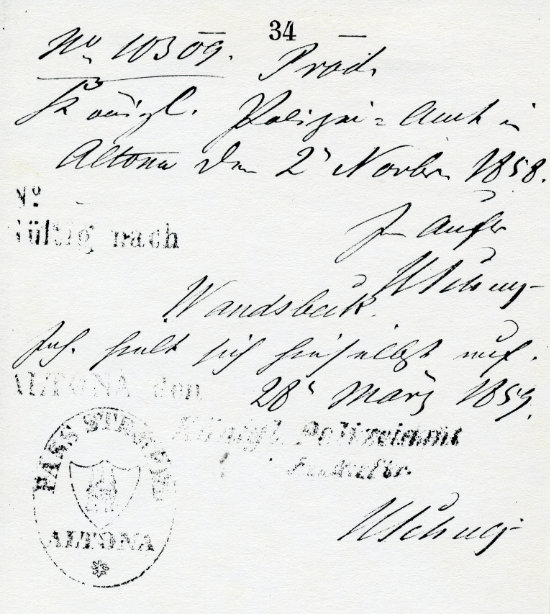 34
No 10309. Prod.
Königl. Polizei=Amt in
Altona den 2t Novbr. 1858.
No
Gültig nach
Im Auftr
Wandsbeck.
Inh. hielt sich hieselbst auf.
ALTONA den 28t März 1859.
Königl. Polizeiamt
PASS STEMPEL
ALTONA